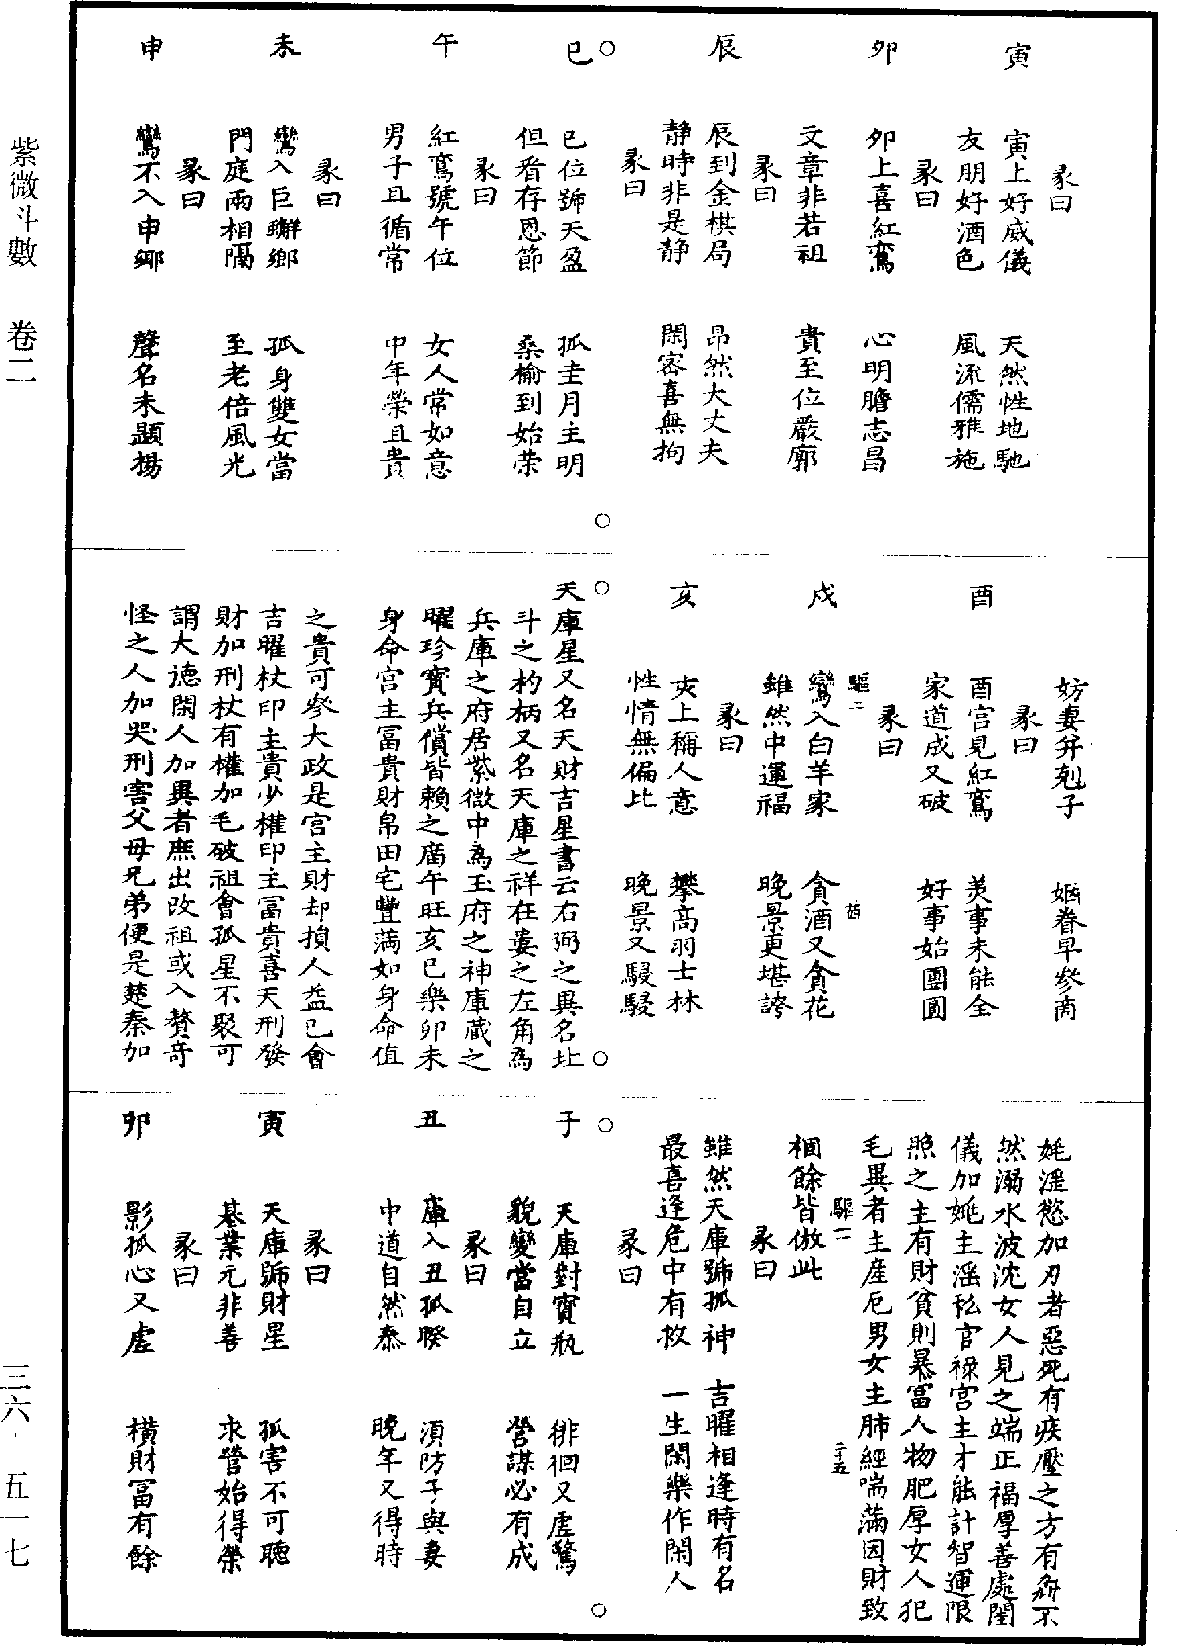 彖曰
寅　寅上好威儀　天然性地馳
友朋好酒色　風流儒雅施
彖曰
卯　卯上喜紅鸞　心明膽志昌
文章非若祖　貴至位嚴廓
彖曰
辰　辰到金棋局　昂然大丈夫
静時非是静　閑密喜無拘
彖曰
巳　巳位號天盈　孤圭月主明
但看存恩節　桑榆到始荣
彖曰
午　紅鸞號午位　女人常如意
男子且循常　中年榮且貴
彖曰
未　鸞入巨鄉　孤身雙女當
門庭兩相隔　至老倍風光
彖曰
申　鸞不入申鄉　聲名未顯揚
妨妻并剋子　姻眷早參商
彖曰
酉　酉宫見紅鸞　美事未能全
家道成又破　好事始團圓
彖曰
驅二
戌　鸞入白羊家　貪酒又貪花
雖然中運福　晚景更堪誇
彖曰
亥　亥上稱人意　攀高羽士林
性情無偏比　晚景又駸駸
天庫星又名天財吉星書云右弼之異名址
斗之杓柄又名天庫之祥在婁之左角為
兵庫之府居紫微中為玉府之神庫藏之
曜珍寳兵償皆賴之廣午旺亥巳樂卯未
身命宫主冨貴財帛田宅豐滿如身命值
之貴可參大政是宫主財却損人益已會
吉曜杖印主貴少權印主冨貴喜天刑發
財加刑杖有權加毛破祖會孤星不聚可
謂大德閑人加異者庶出改祖或入贅奇
怪之人加哭刑害父母兄弟便是楚秦加
姚淫慾加刃者惡死有疾壓之方有奔不
然溺水波沈女人見之端正福厚善處閨
儀加姚主淫私官祿宫主才能計智運限
照之主有財貧則暴冨人物肥厚女人犯
毛異者主産厄男女主肺經喘滿因財致
驅一　二十五
栶餘皆倣此
彖曰
雖然天庫號孤神　吉曜相逢時有名
最喜逢危中有救　一生閑樂作閑人
彖曰
子　天庫對寳瓶　徘徊又虚驚
貌變當自立　營謀必有成
彖曰
丑　庫入丑孤睽　須防子與妻
中道自然泰　晚年又得時
彖曰
寅　天庫號財星　孤害不可聽
基業元非善　求營始得榮
彖曰
卯　影孤心又虚　横財冨有餘
紫微斗數　卷二　三六·五一七